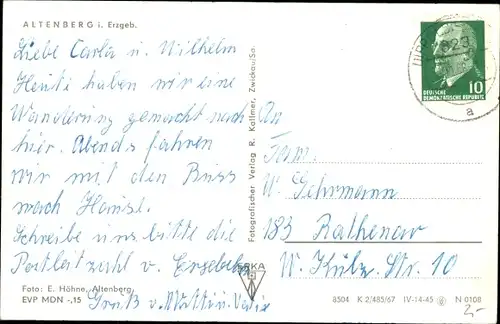 ALTENBERG i. Erzgeb.
Liebe Carla u. Wilhelm
Heute haben wir eine
Wanderung gemacht nach
hier. Abends fahren
wir mit den Buss
nach Hause.
Schreibe uns bitte die
Postleitzahl v.
Gruß v.
Foto: E. Höhne, Altenberg
EVP MDN -,15
Fotografischer Verlag R. Kallmer, Zwickau/Sa.
ERKA
DEUTSCHE
DEMOKRATISCHE REPUBLIK
10
a
An
Fam.
W. Gehrmann
183 Rathenow
W. Külz. Str. 10
8504 K 2/485/67 IV-14-45 N 0108
2,-